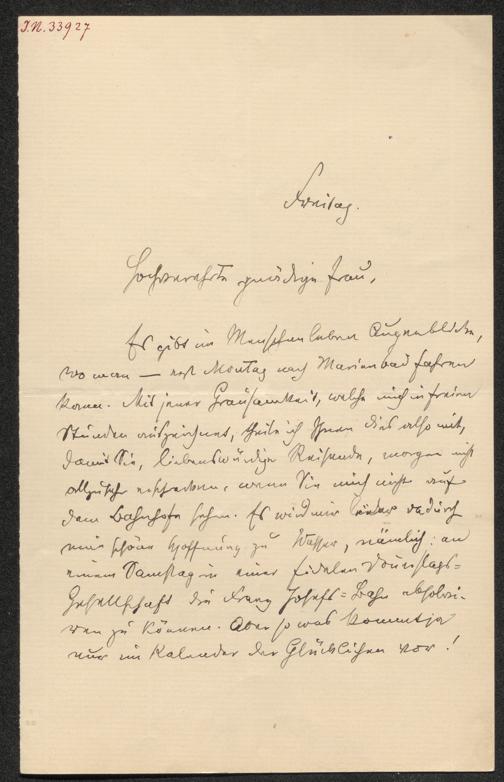 I.N. 33927
Freitag.
Hochverehrte gnädige Frau,
Es gibt im Menschenleben Augenblicke,
wo man — erst Montag nach Marienbad fahren
kann. Mit jener Grausamkeit, welche mich in freien
Stunden auszeichnet, theile ich Ihnen dies also mit,
damit Sie, liebenswürdige Reisende, morgen nicht
allzusehr erschrecken, wenn Sie mich nicht auf
dem Bahnhofe sehen. Es wird mir dadurch
eine schöne Hoffnung zu Wasser, nämlich: an
einem Samstag in einer fidelen Donnstags=
Gesellschaft die Franz Josefs=Bahn absolvi-
ren zu können. Aber so was kommt ja
nur im Kalender der Glücklichen vor!